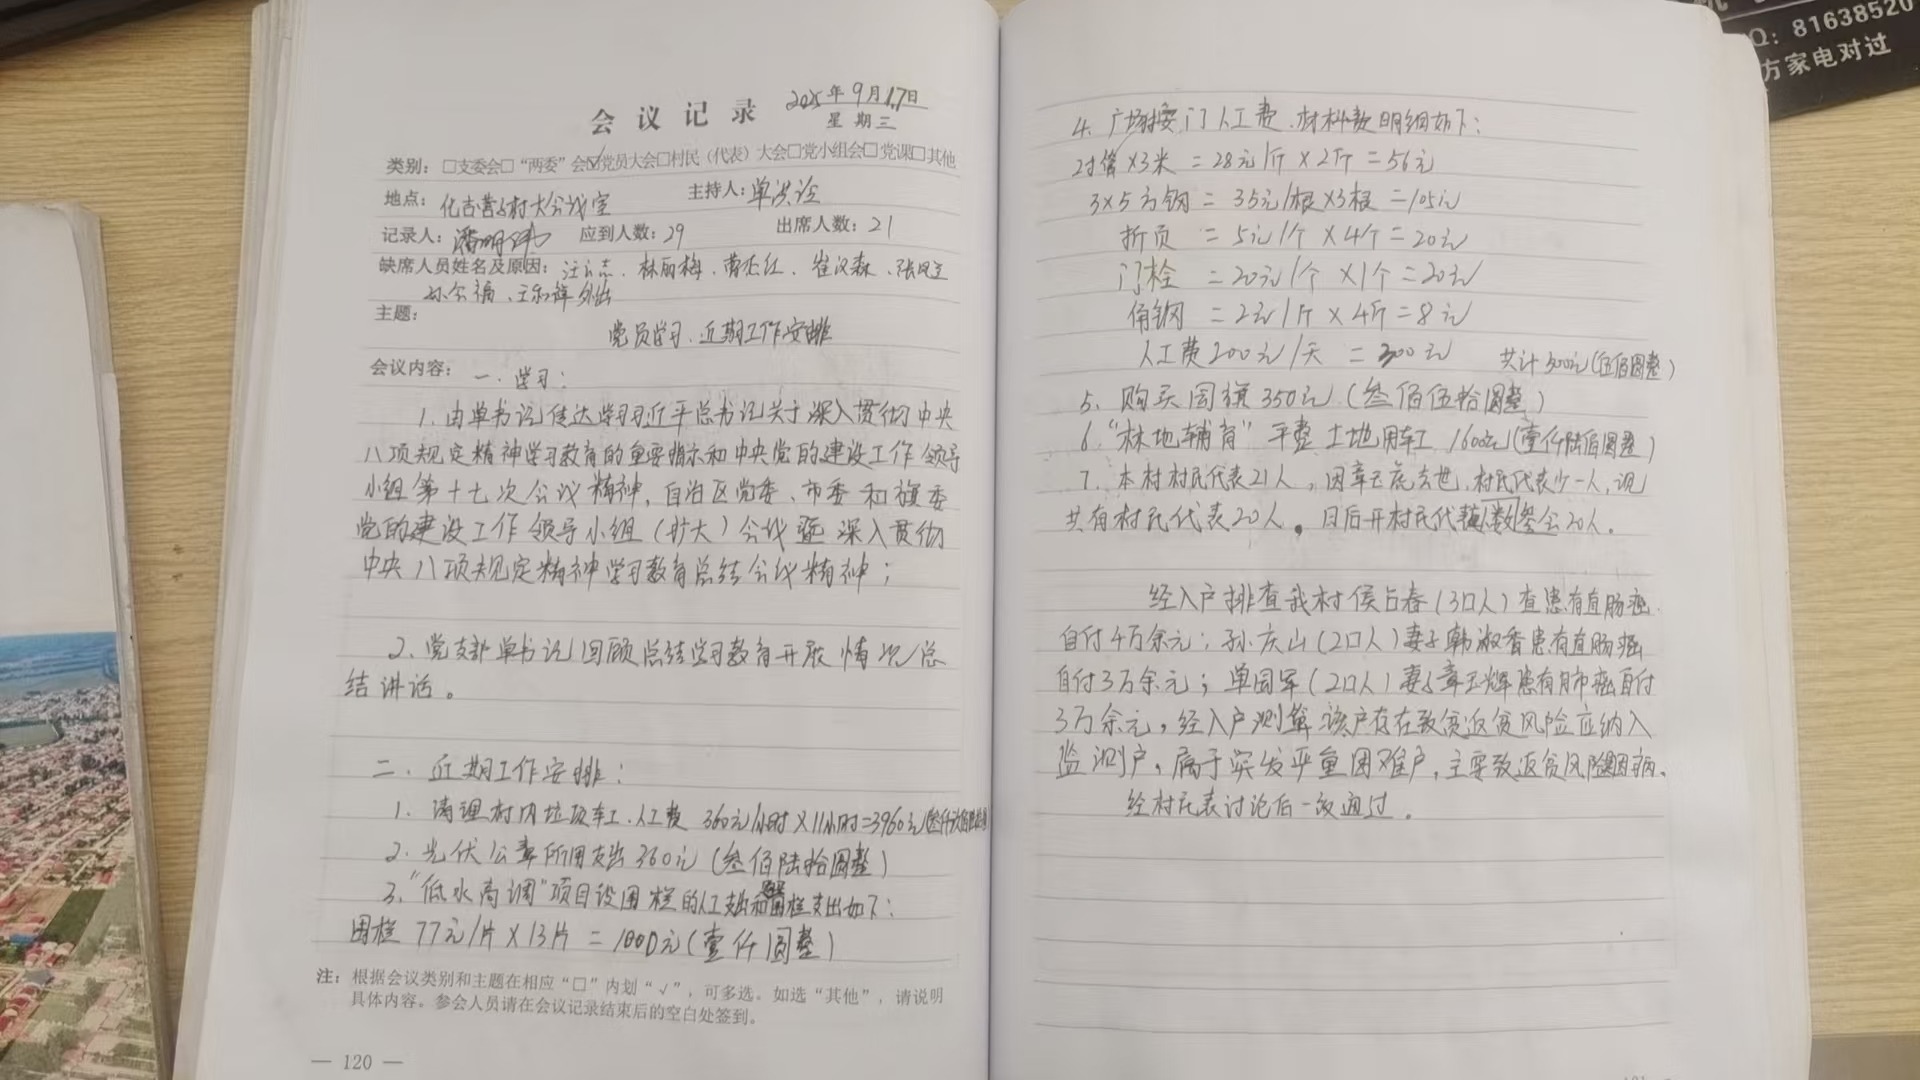 会议记录
2025年9月17日
星期三
类别：□支委会□“两委”会☑党员大会□村民（代表）大会□党小组会□党课□其他
地点：化吉营子村大会议室 主持人：单洪
记录人：潘明伟 应到人数：29 出席人数：21
缺席人员姓名及原因：汪 志、林丽梅、曹 红、崔汉森、张凤
孙公福、王和祥外出
主题：
党员学习、近期工作安排
会议内容：一、学习：
1. 由单书记传达学习习近平总书记关于深入贯彻中央
八项规定精神学习教育的重要指示和中央党的建设工作领导
小组第十七次会议精神，自治区党委、市委和旗委
党的建设工作领导小组（扩大）会议暨深入贯彻
中央八项规定精神学习教育总结会议精神；
2. 党支部单书记回顾总结学习教育开展情况总
结讲话。
二、近期工作安排：
1. 清理村内垃圾车工、人工费 360元/小时×11小时=3960元
2. 光伏公章所用支出360元（叁佰陆拾圆整）
3. “低水高调”项目设围栏的人工支出和围栏支出如下：
围栏 77元/片×13片=1000元（壹仟圆整）
注：根据会议类别和主题在相应“□”内划“√”，可多选。如选“其他”，请说明
具体内容。参会人员请在会议记录结束后的空白处签到。
— 120 —
4. 广场按门人工费、材料款明细如下：
2寸管×3米=28元/斤×2斤=56元
3×5方钢=35元/根×3根=105元
折页=5元/个×4个=20元
门栓=20元/个×1个=20元
角钢=2元/斤×4斤=8元
人工费200元/天=300元 共计500元（伍佰圆整）
5、购买国旗350元（叁佰伍拾圆整）
6. “林地辅育”平整土地用车工1600元（壹仟陆佰圆整）
7. 本村村民代表21人，因章玉 去世，村民代表少一人，现
共有村民代表20人。日后开村民代表人数参会20人。
经入户排查我村侯占春（3口人）查患有直肠癌
自付4万余元；孙庆山（2口人）妻子韩淑香患有直肠癌
自付3万余元；单国军（2口人）妻子章玉辉患有肺癌自付
3万余元，经入户测算该户存在致贫返贫风险应纳入
监测户，属于突发严重困难户，主要致返贫风险因病、
经村民表讨论后一致通过。
Q：81638520
方家电对过